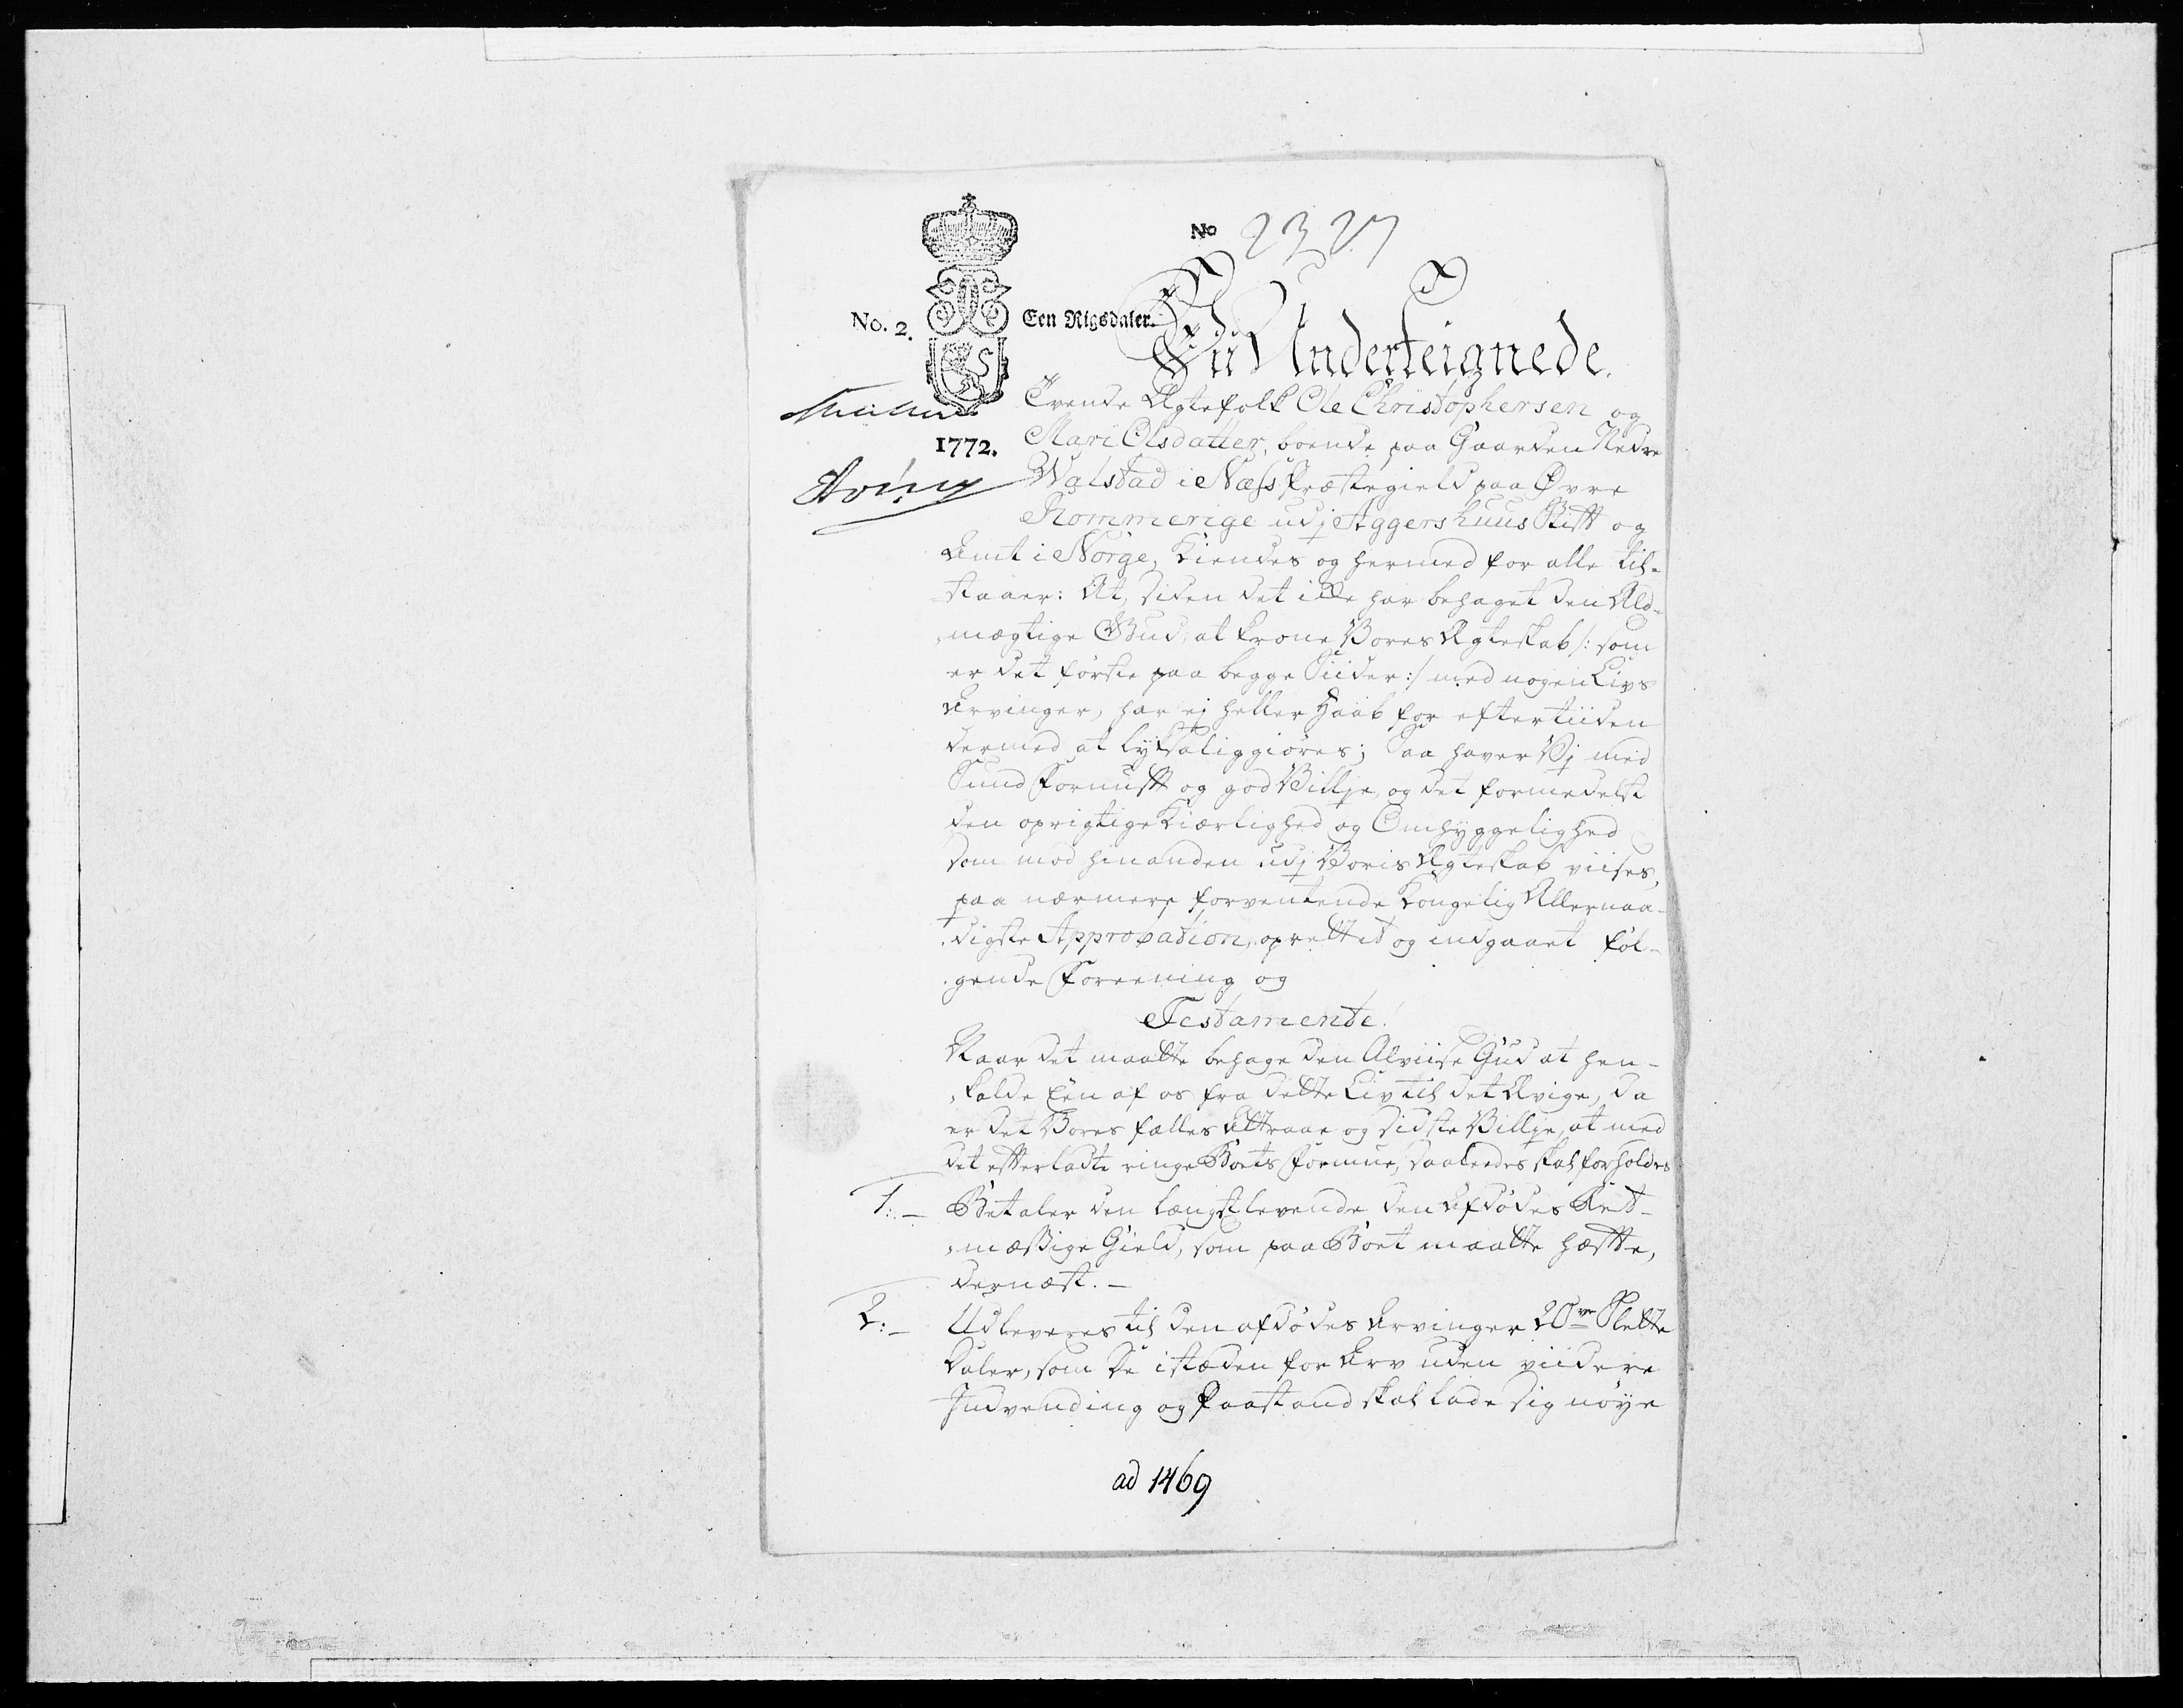 No 2327
No. 2.
Een Rigsdaler.
Vii Underteignede.
Tvende Ægtefolk Ole Christophersen og
1772.
Mari Olsdatter, boende paa Gaarden Nedre
Walstad i Næss Præstegield paa Øvre
Rommerige udj Aggershuus Stift og
Amt i Norge, Kiendes og hermed for alle til-
staaer: At, siden det ikke har behaget den Ald-
mægtige Gud, at krone Vores Ægteskab /: som
er det første paa begge Siider :/ med nogen Livs
Arvinger, har ej heller Haab for eftertiiden
dermed at lyksaliggiøres; Saa haver Vj med
Sund Fornuft og god Villje, og det formedelst
den oprigtige Kiærlighed og Omhyggelighed
som mod hinanden udj Voris Ægteskab viises,
paa nærmere forventende Kongelig Allernaa-
digste Approbation, oprettet og indgaaet føl-
gende Foreening og
Testamente.
Naar det maatte behage den Alviise Gud at hen-
kalde Een af os fra dette Liv til det Ævige, da
er det Vores fælles Attraae og sidste Villje, at med
det efterladte ringe Boets Formue, saaleedes skal forholdes
1: Betaler den længstlevende den Afdødes Ret-
mæssige Gield, som paa Boet maatte hæfte,
dernæst. -
2: Udleveres til den afdødes Arvinger 20ve Slette
Daler, som De i stæden for Arv uden viidere
Indvending og Paastand skal lade sig nøye
ad 1469